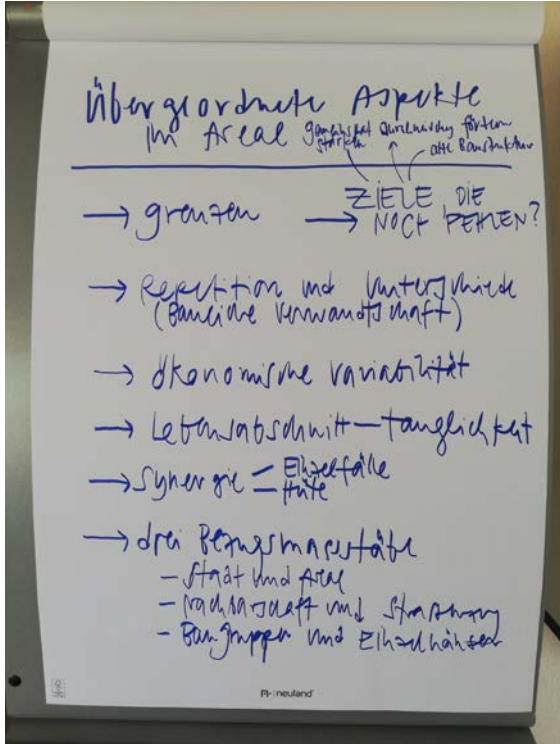 Übergeordnete Aspekte
im Areal
gemeinschaft stärken
Durchmischung fördern
alte Baustruktur
→ Grenzen
→ ZIELE, DIE
NOCH FEHLEN?
→ Repetition und Unterschiede
(Bauliche Verwandtschaft)
→ ökonomische Variabilität
→ Lebensabschnitt-tauglichkeit
→ Synergie
Einzelfälle
→ drei Bezugsmassstäbe
– Stadt und Areal
– Nachbarschaft und
– Baugruppen und Einzelhäuser
neuland